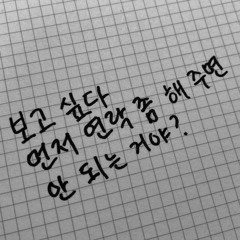 보고 싶다
먼저 연락 좀 해 주면
안 되는 거야?